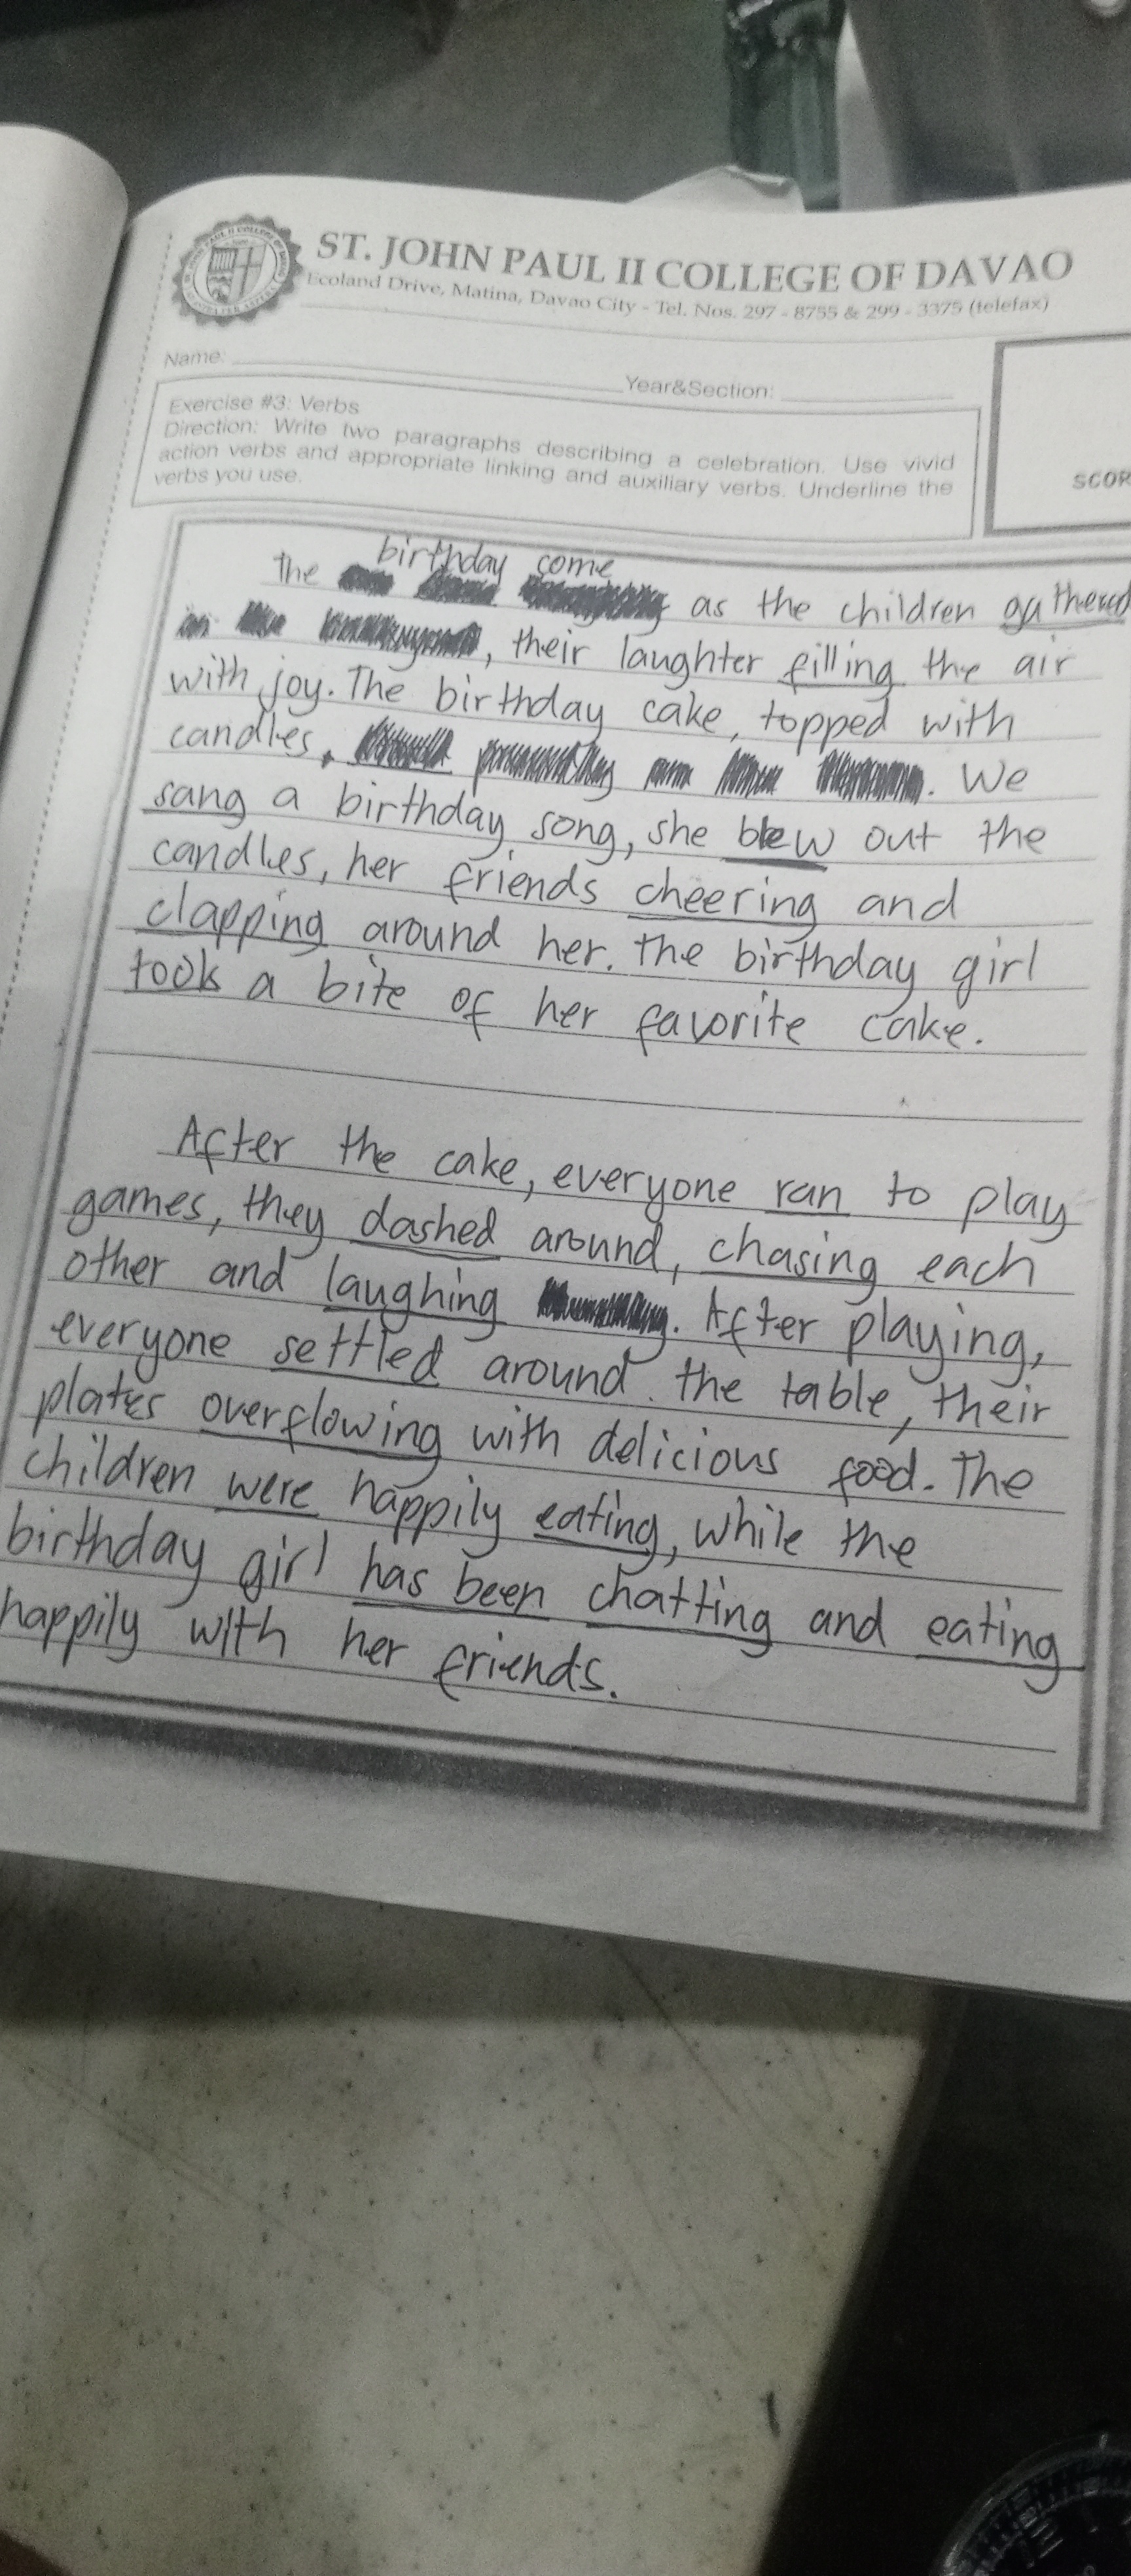 ST. JOHN PAUL II COLLEGE OF DAVAO
Ecoland Drive, Matina, Davao City - Tel. Nos. 297 - 8755 & 299 - 3375 (telefax)
Name:
Year&Section:
Exercise #3: Verbs
Direction: Write two paragraphs describing a celebration. Use vivid
action verbs and appropriate linking and auxiliary verbs. Underline the
verbs you use.
SCOR
birthday come
The as the children gathered
, their laughter filling the air
with joy. The birthday cake, topped with
candles. We
sang a birthday song, she blew out the
candles, her friends cheering and
clapping around her. The birthday girl
took a bite of her favorite cake.
After the cake, everyone ran to play
games, they dashed around, chasing each
other and laughing . After playing,
everyone settled around the table, their
plates overflowing with delicious food. The
children were happily eating, while the
birthday girl has been chatting and eating
happily with her friends.